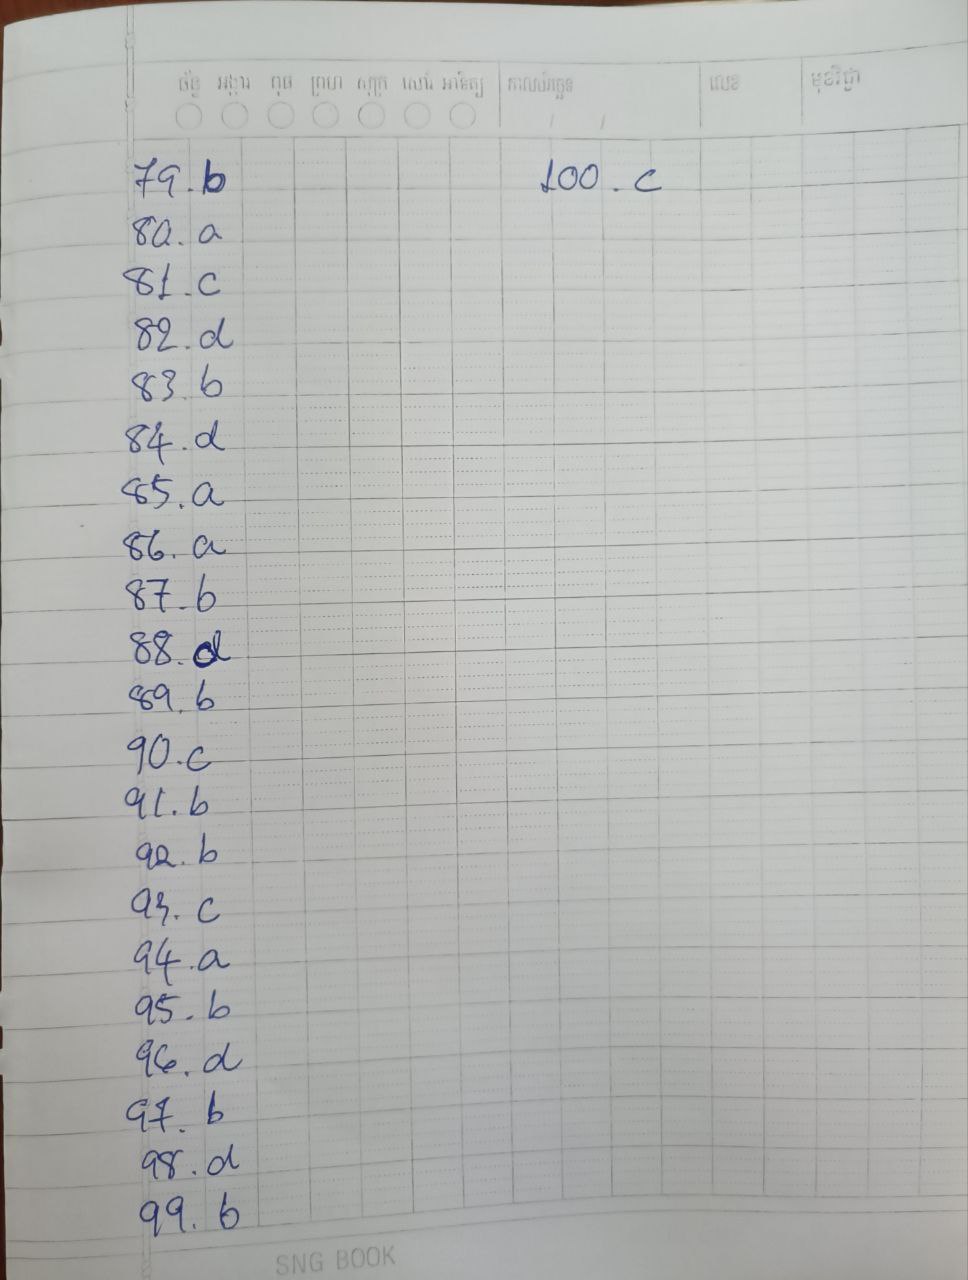 ច័ន្ទ អង្គារ ពុធ ព្រហ សុក្រ សៅរ៍ អាទិត្យ កាលបរិច្ឆេទ / / លេខ មុខវិជ្ជា
79. b 100. c
80. a
81. c
82. d
83. b
84. d
85. a
86. a
87. b
88. d
89. b
90. c
91. b
92. b
93. c
94. a
95. b
96. d
97. b
98. d
99. b
SNG BOOK